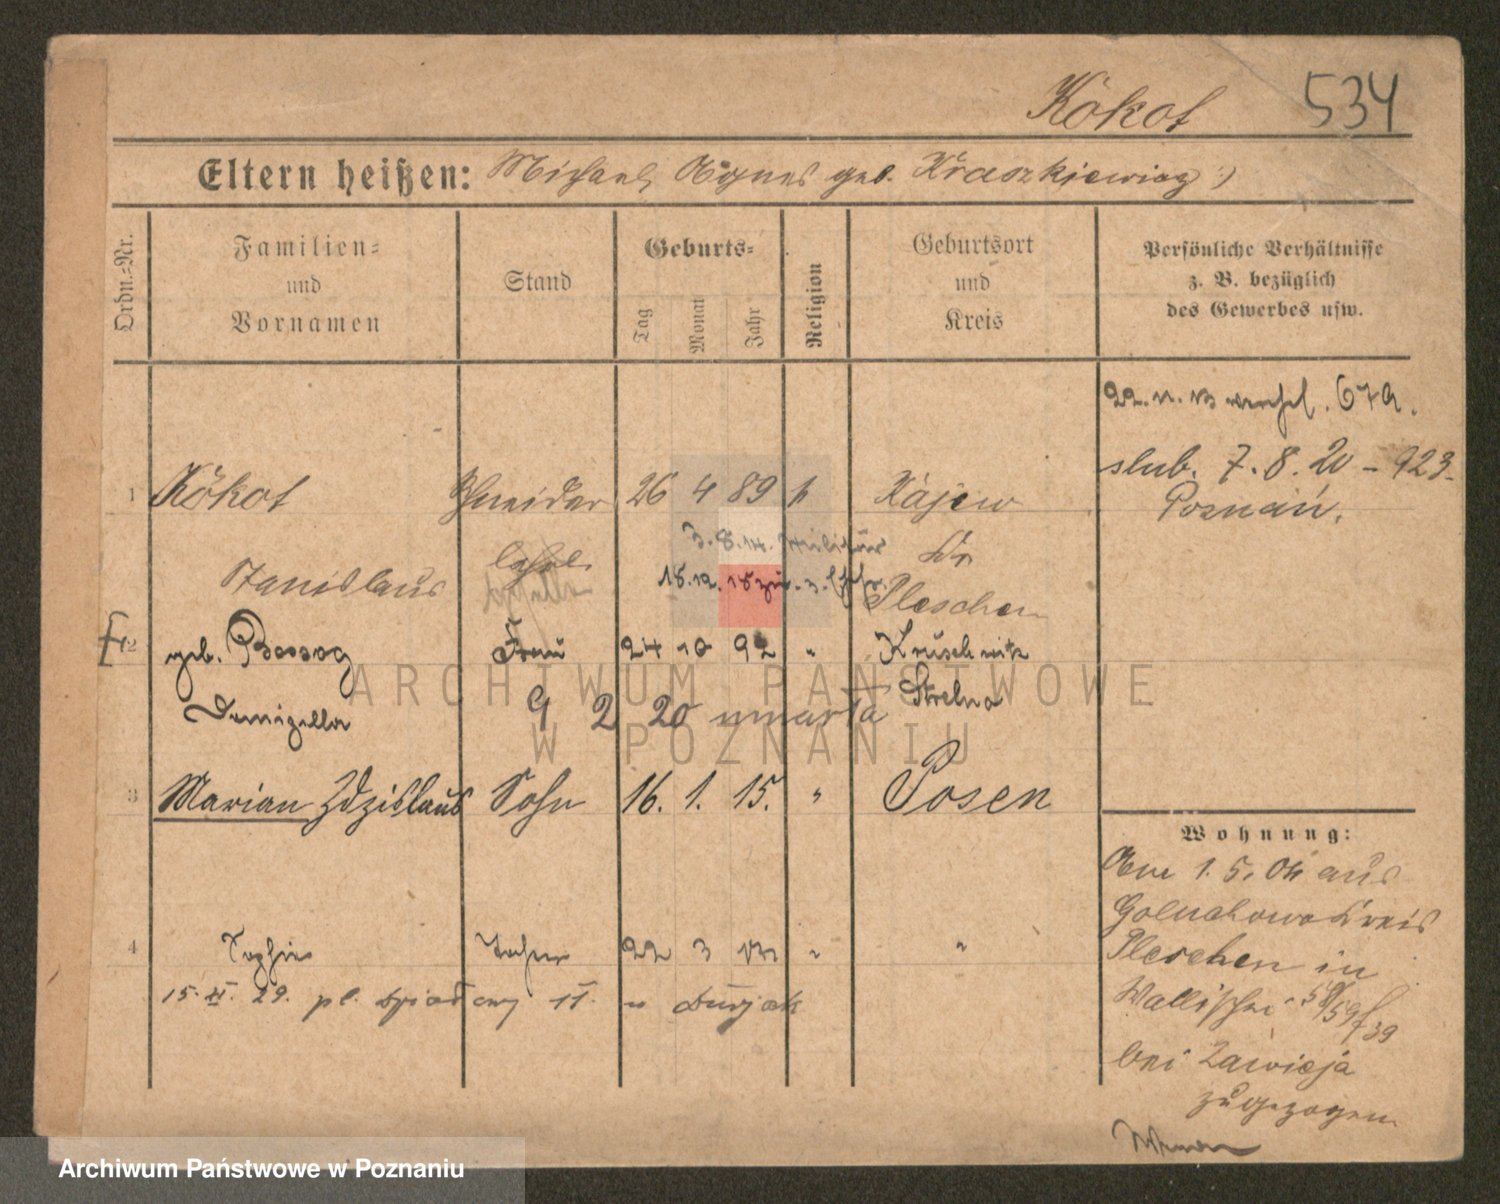 Kokot 534
Eltern heißen: Michael, Agnes geb. Kraszkiewicz :)
Ordn.=Nr.
Familien=
und
Vornamen
Stand
Geburts=
Tag
Monat
Jahr
Religion
Geburtsort
und
Kreis
Persönliche Verhältnisse
z. B. bezüglich
des Gewerbes usw.
22. 11. 13 67a.
slub. 7. 8. 20 – 923.
Poznań.
1 Kokot Schneider 26 4 89 k Kajew
3. 8. 14. Militär
Stanislaus lehrl. Kr
18. 12. 18 zur.
Pleschen
2 geb. Frau 24 10 92 " Kruschwitz
Strelno
9 2 20 umarła
3 Marian Zdzislaus Sohn 16. 1. 15. " Posen
Wohnung:
Am 1. 5. 04 aus
Goluchowo Kreis
Pleschen in
Wallischei 58/59 f 39
bei Zawieja
zugezogen
4 Sophie Tochter 22 3 " "
15. II. 29. pl. 11.
ARCHIWUM PAŃSTWOWE
W POZNANIU
Archiwum Państwowe w Poznaniu